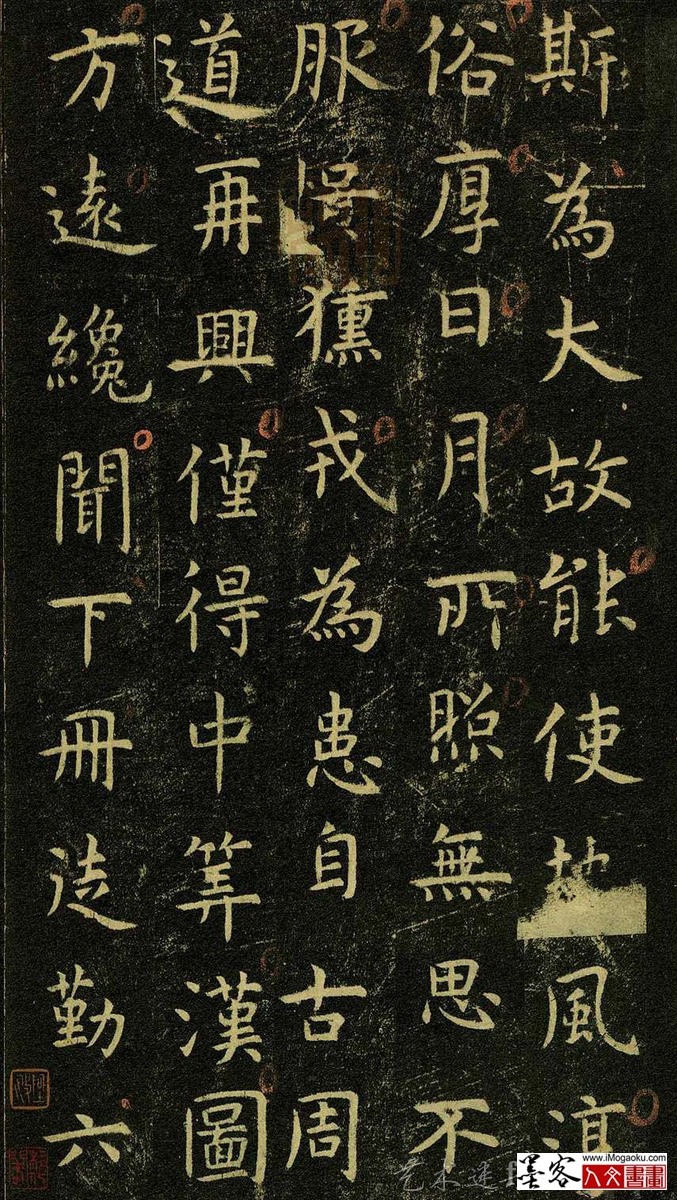 斯為大故能使風淳
俗厚日月所照無思不
服獯戎為患自古周
道再興僅得中筭漢圖
方遠纔聞下冊徒勤六
墨客 www.iMogaoku.com
人文書畫